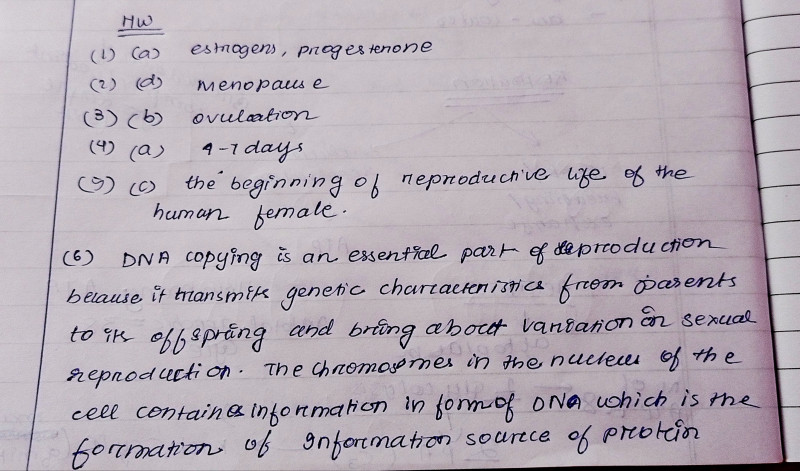 HW
(1) (a) estrogens, progesterone
(2) (d) menopause
(3) (b) ovulation
(4) (a) 4-7 days
(5) (c) the beginning of reproductive life of the
human female.
(6) DNA copying is an essential part of reproduction
because it transmits genetic characteristics from parents
to its offspring and bring about variation in sexual
reproduction. The chromosomes in the nucleus of the
cell contains information in form of DNA which is the
formation of information source of protein